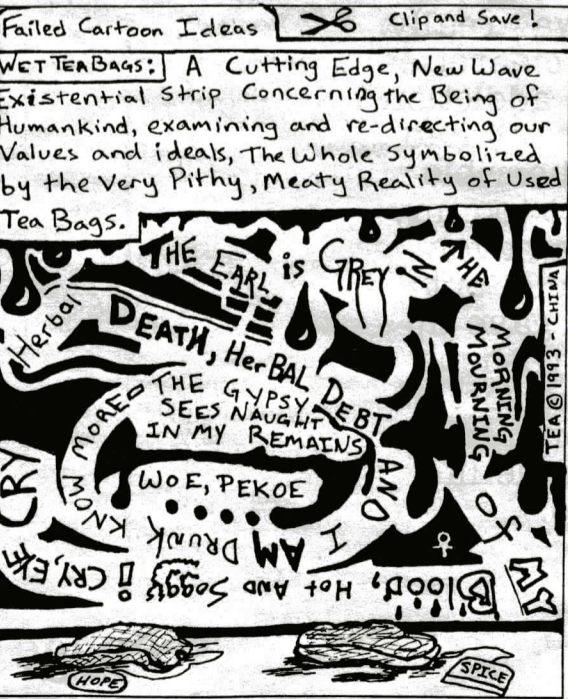 Failed Cartoon Ideas
Clip and Save!
WET TEA BAGS: A Cutting Edge, New Wave
Existential Strip Concerning the Being of
Humankind, examining and re-directing our
Values and ideals, The Whole Symbolized
by the Very Pithy, Meaty Reality of Used
Tea Bags.
THE EARL is GREY IN THE
MORNING
MOURNING
OF MY
BLOOD, HOT AND SOGGY
i CRY, EKE CRY
Herbal DEATH, HerBAL DEBT AND
I AM DRUNK
KNOW MORE
THE GYPSY
SEES NAUGHT
IN MY REMAINS
WOE, PEKOE
TEA © 1993 - CHINA
HOPE
SPICE